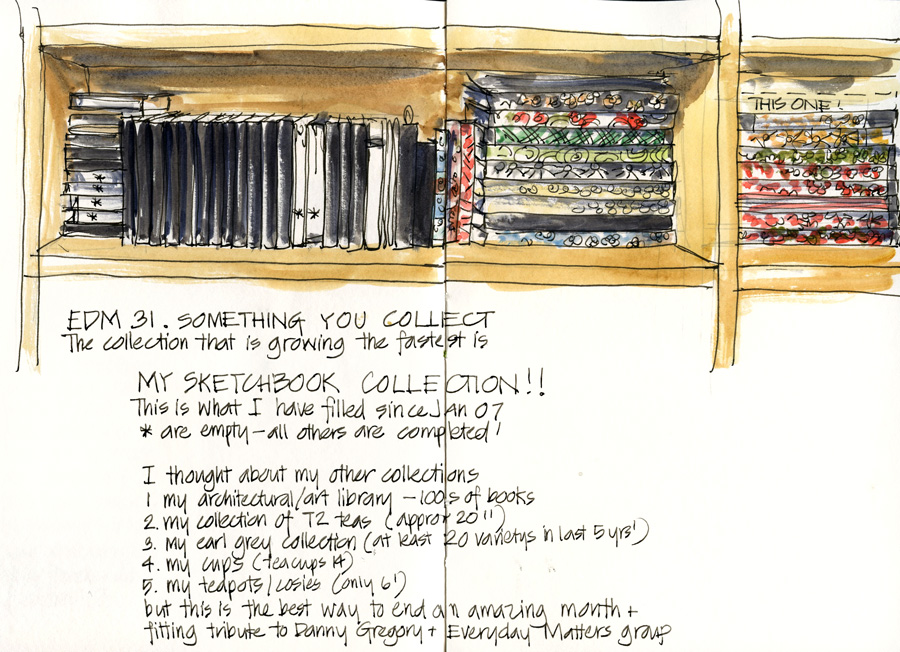 THIS ONE!
EDM 31. SOMETHING YOU COLLECT
The collection that is growing the fastest is
MY SKETCHBOOK COLLECTION!!
This is what I have filled since Jan 07
* are empty - all others are completed!
I thought about my other collections
1 my architectural/art library - 100s of books
2. my collection of T2 teas (approx 20!!)
3. my earl grey collection (at least 20 varietys in last 5 yrs!)
4. my cups (teacups 14)
5. my teapots/cosies (only 6!)
but this is the best way to end an amazing month +
fitting tribute to Danny Gregory + Everyday Matters group